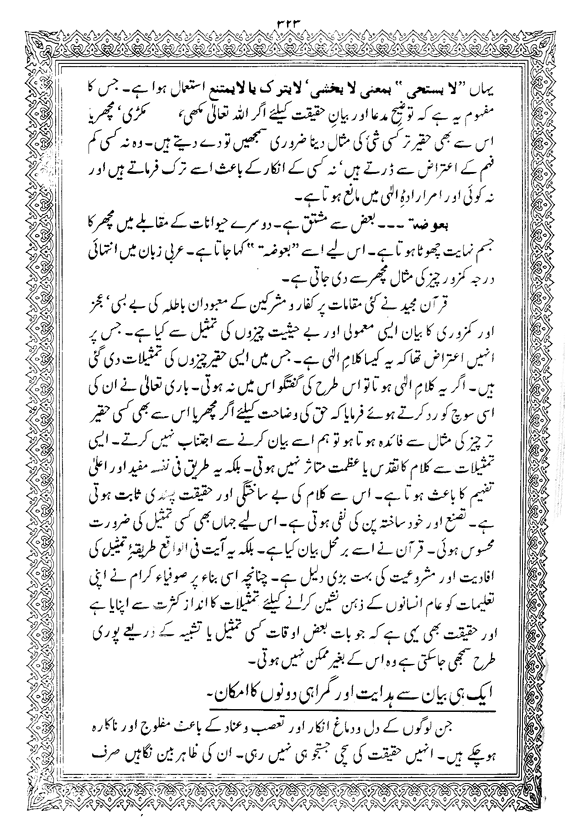 ۳۲۳
یہاں ”لا یستحی“ بمعنی لا یخشی‘ لایترک یا لایمتنع استعمال ہوا ہے۔ جس کا
مفہوم یہ ہے کہ توضیح مدعا اور بیان حقیقت کیلئے اگر اللہ تعالیٰ مکھی‘ مکڑی‘ مچھر یا
اس سے بھی حقیر تر کسی شئ کی مثال دینا ضروری سمجھیں تو دے دیتے ہیں۔ وہ نہ کسی کم
فہم کے اعتراض سے ڈرتے ہیں‘ نہ کسی کے انکار کے باعث اسے ترک فرماتے ہیں اور
نہ کوئی اور امر ارادۂ الٰہی میں مانع ہوتا ہے۔
بعوضۃ ۔۔۔ بعض سے مشتق ہے۔ دوسرے حیوانات کے مقابلے میں مچھر کا
جسم نہایت چھوٹا ہوتا ہے۔ اس لیے اسے ”بعوضۃ“ کہا جاتا ہے۔ عربی زبان میں انتہائی
درجہ کمزور چیز کی مثال مچھر سے دی جاتی ہے۔
قرآن مجید نے کئی مقامات پر کفار و مشرکین کے معبودان باطلہ کی بے بسی‘ عجز
اور کمزوری کا بیان ایسی معمولی اور بے حیثیت چیزوں کی تمثیل سے کیا ہے۔ جس پر
انہیں اعتراض تھا کہ یہ کیسا کلام الٰہی ہے۔ جس میں ایسی حقیر چیزوں کی تمثیلات دی گئی
ہیں۔ اگر یہ کلام الٰہی ہوتا تو اس طرح کی گفتگو اس میں نہ ہوتی۔ باری تعالیٰ نے ان کی
اسی سوچ کو رد کرتے ہوئے فرمایا کہ حق کی وضاحت کیلئے اگر مچھر یا اس سے بھی کسی حقیر
تر چیز کی مثال سے فائدہ ہوتا ہو تو ہم اسے بیان کرنے سے اجتناب نہیں کرتے۔ ایسی
تمثیلات سے کلام کا تقدس یا عظمت متاثر نہیں ہوتی۔ بلکہ یہ طریق فی نفسہ مفید اور اعلیٰ
تفہیم کا باعث ہوتا ہے۔ اس سے کلام کی بے ساختگی اور حقیقت پسندی ثابت ہوتی
ہے۔ تصنع اور خود ساختہ پن کی نفی ہوتی ہے۔ اس لیے جہاں بھی کسی تمثیل کی ضرورت
محسوس ہوئی۔ قرآن نے اسے برمحل بیان کیا ہے۔ بلکہ یہ آیت فی الواقع طریقۂ تمثیل کی
افادیت اور مشروعیت کی بہت بڑی دلیل ہے۔ چنانچہ اسی بناء پر صوفیاء کرام نے اپنی
تعلیمات کو عام انسانوں کے ذہن نشین کرانے کیلئے تمثیلات کا انداز کثرت سے اپنایا ہے
اور حقیقت بھی یہی ہے کہ جو بات بعض اوقات کسی تمثیل یا تشبیہ کے ذریعے پوری
طرح سمجھی جاسکتی ہے وہ اس کے بغیر ممکن نہیں ہوتی۔
ایک ہی بیان سے ہدایت اور گمراہی دونوں کا امکان۔
جن لوگوں کے دل و دماغ انکار اور تعصب و عناد کے باعث مفلوج اور ناکارہ
ہوچکے ہیں۔ انہیں حقیقت کی سچی جستجو ہی نہیں رہی۔ ان کی ظاہر بین نگاہیں صرف